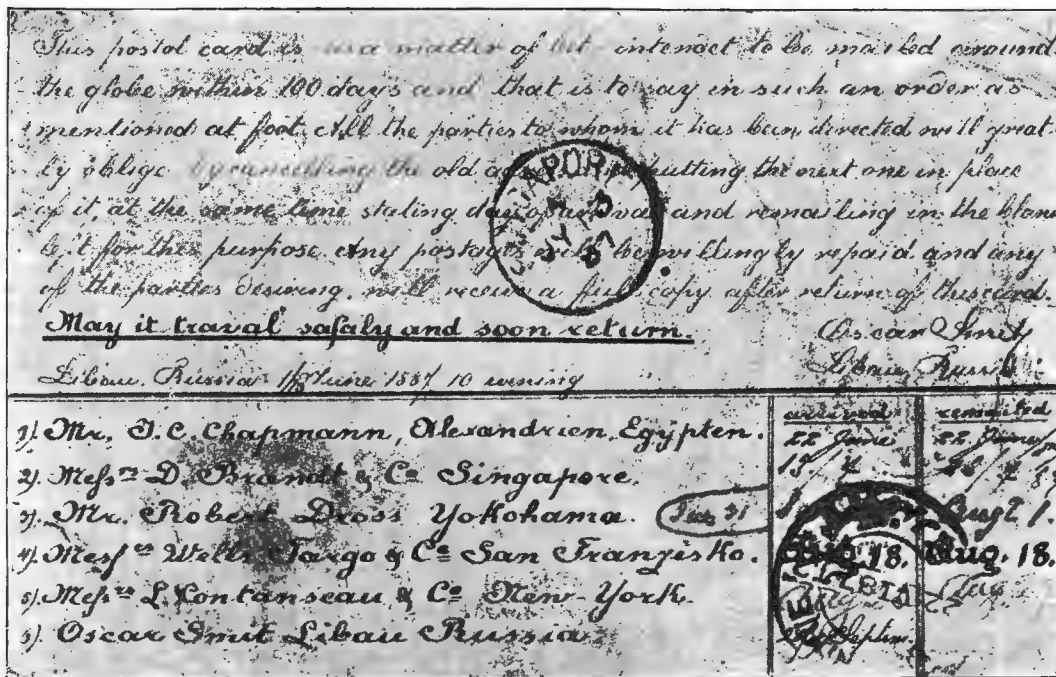 This postal card is as a matter of bet intendet to be mailed around
the globe within 100 days and that is to say in such an order as
mentioned at foot. All the parties to whom it has been directed will great-
ly oblige by cancelling the old putting the next one in place
of it, at the same time stating day of arrival and remailing in the blank
left for this purpose. Any postages will be willingly repaid and any
of the parties desiring, will receive a full copy after return of this card.
May it traval safaly and soon return.
Oscar Smit
Libau, Russia
Libau, Russia June 1887 10 evening
arrived remailed
1). Mr. J. C. Chapmann, Alexandrien, Egypten. 22 June 22 June
2). Messrs D. Brandt & Co Singapore.
3). Mr. Robert Dross Yokohama. Augt 1
4). Messrs Wells Fargo & Co San Franzisko. Aug. 18. Aug. 18.
5). Messrs L. Contanseau & Co New-York. Aug
6). Oscar Smit Libau Russia
SINGAPORE
A
JY 13
87